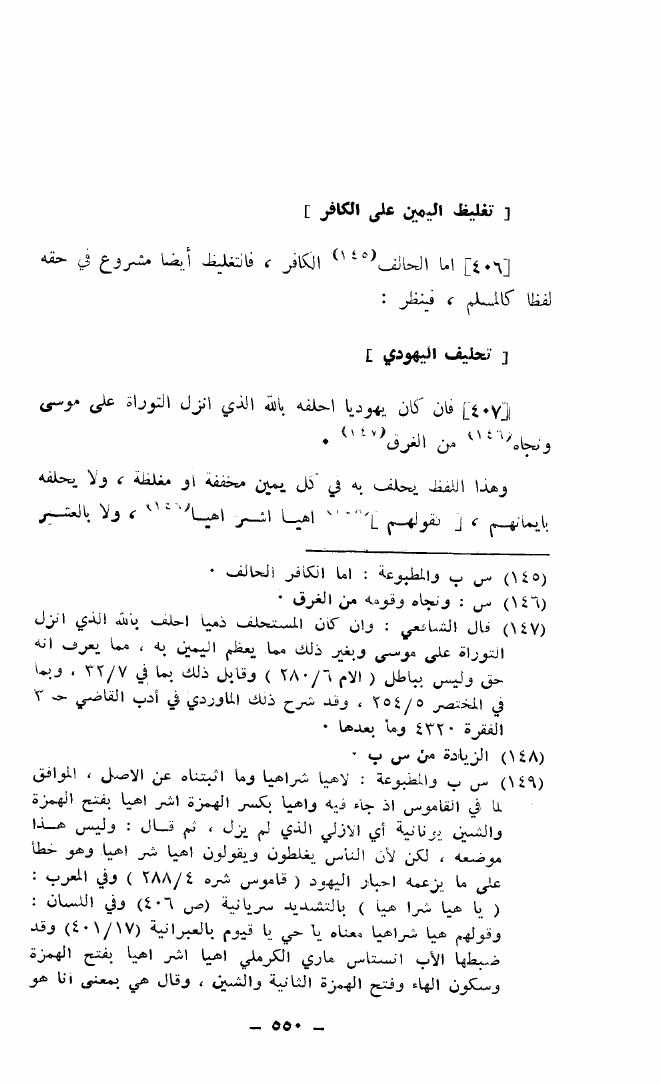 [ تغليظ اليمين على الكافر ]
[٤٠٦] اما الحالف(١٤٥) الكافر ، فالتغليظ أيضا مشروع في حقه
لفظا كالمسلم ، فينظر :
[ تحليف اليهودي ]
[٤٠٧] فان كان يهوديا احلفه بالله الذي انزل التوراة على موسى
ونجاه(١٤٦) من الغرق(١٤٧) .
وهذا اللفظ يحلف به في كل يمين مخففة او مغلظة ، ولا يحلفه
بايمانهم ، [ كقولهم ](١٤٨) اهيا اشر اهيا(١٤٩) ، ولا بالعشر
(١٤٥) س ب والمطبوعة : اما الكافر الحالف .
(١٤٦) س : ونجاه وقومه من الغرق .
(١٤٧) قال الشافعي : وان كان المستحلف ذميا احلف بالله الذي انزل
التوراة على موسى وبغير ذلك مما يعظم اليمين به ، مما يعرف انه
حق وليس بباطل ( الام ٢٨٠/٦ ) وقابل ذلك بما في ٣٢/٧ ، وبما
في المختصر ٢٥٤/٥ ، وقد شرح ذلك الماوردي في أدب القاضي حـ ٣
الفقرة ٤٣٢٠ وما بعدها .
(١٤٨) الزيادة من س ب .
(١٤٩) س ب والمطبوعة : لاهيا شراهيا وما اثبتناه عن الاصل ، الموافق
لما في القاموس اذ جاء فيه واهيا بكسر الهمزة اشر اهيا بفتح الهمزة
والشين يونانية أي الازلي الذي لم يزل ، ثم قال : وليس هذا
موضعه ، لكن لأن الناس يغلطون ويقولون اهيا شر اهيا وهو خطأ
على ما يزعمه احبار اليهود ( قاموس شره ٢٨٨/٤ ) وفي المعرب :
( يا هيا شرا هيا ) بالتشديد سريانية (ص ٤٠٦) وفي اللسان :
وقولهم هيا شراهيا معناه يا حي يا قيوم بالعبرانية (٤٠١/١٧) وقد
ضبطها الأب انستاس ماري الكرملي اهيا اشر اهيا بفتح الهمزة
وسكون الهاء وفتح الهمزة الثانية والشين ، وقال هي بمعنى أنا هو
– ٥٥٠ –